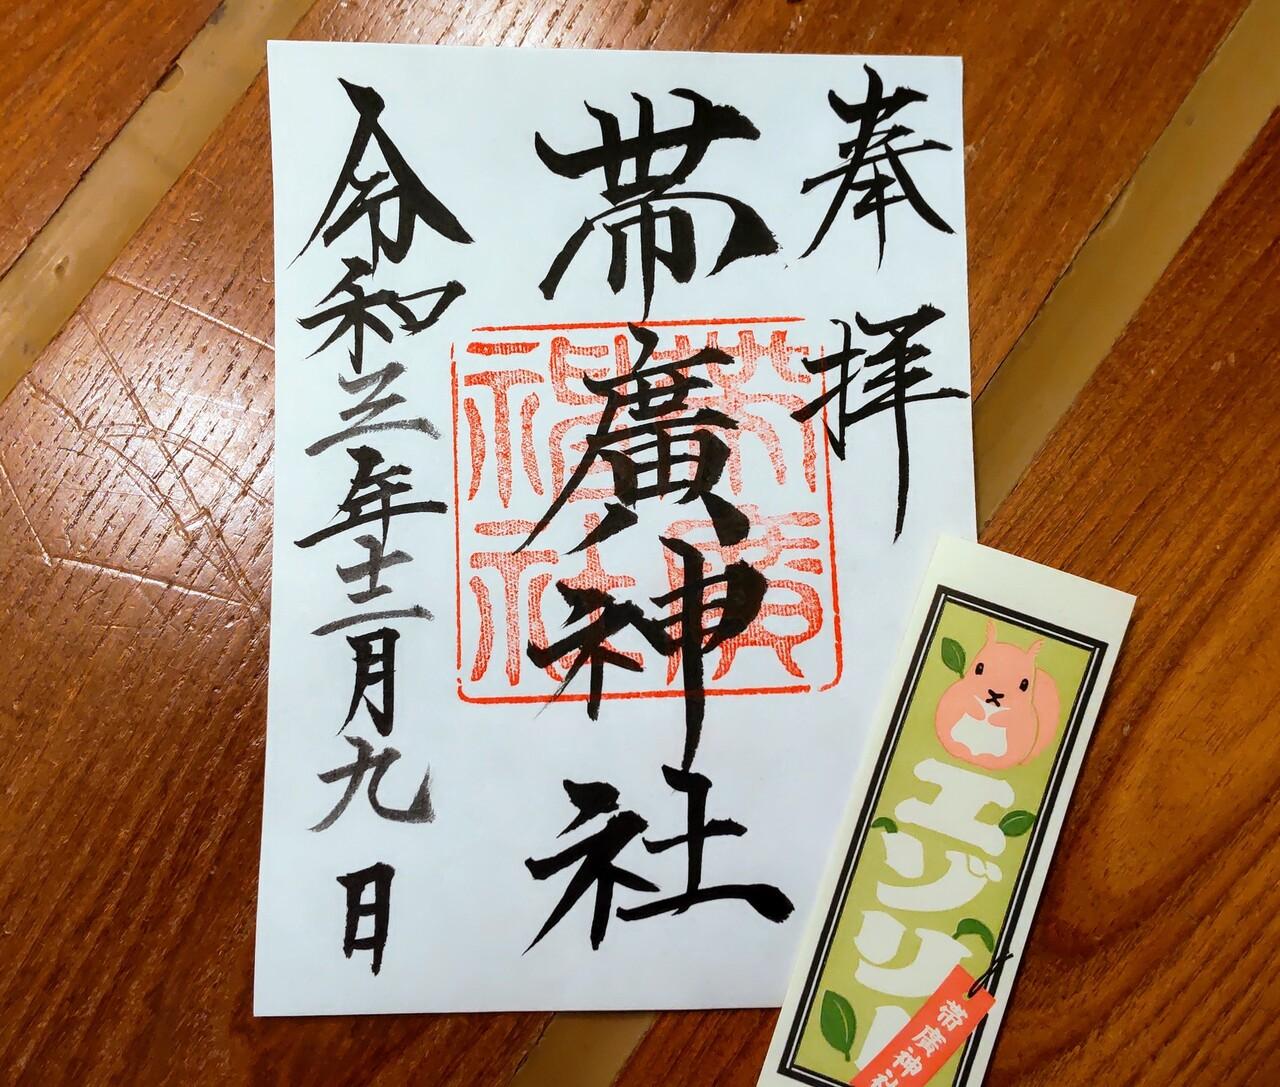 奉拝
帯廣神社
令和三年十二月九日
帯廣神社
エゾリ
帯廣神社